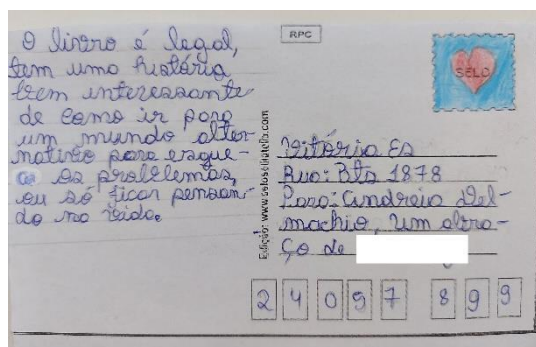 O livro é legal,
tem uma história
bem interessante
de como ir para
um mundo alter-
nativo para esque-
ce os problemas,
ou só ficar pensan-
do na vida.
RPC
SELO
Edição: www.seloseditarello.com
Vitória Es
Rua: Bts 1878
Para: Andreia Del-
machio, um abra-
ço de
24097 899